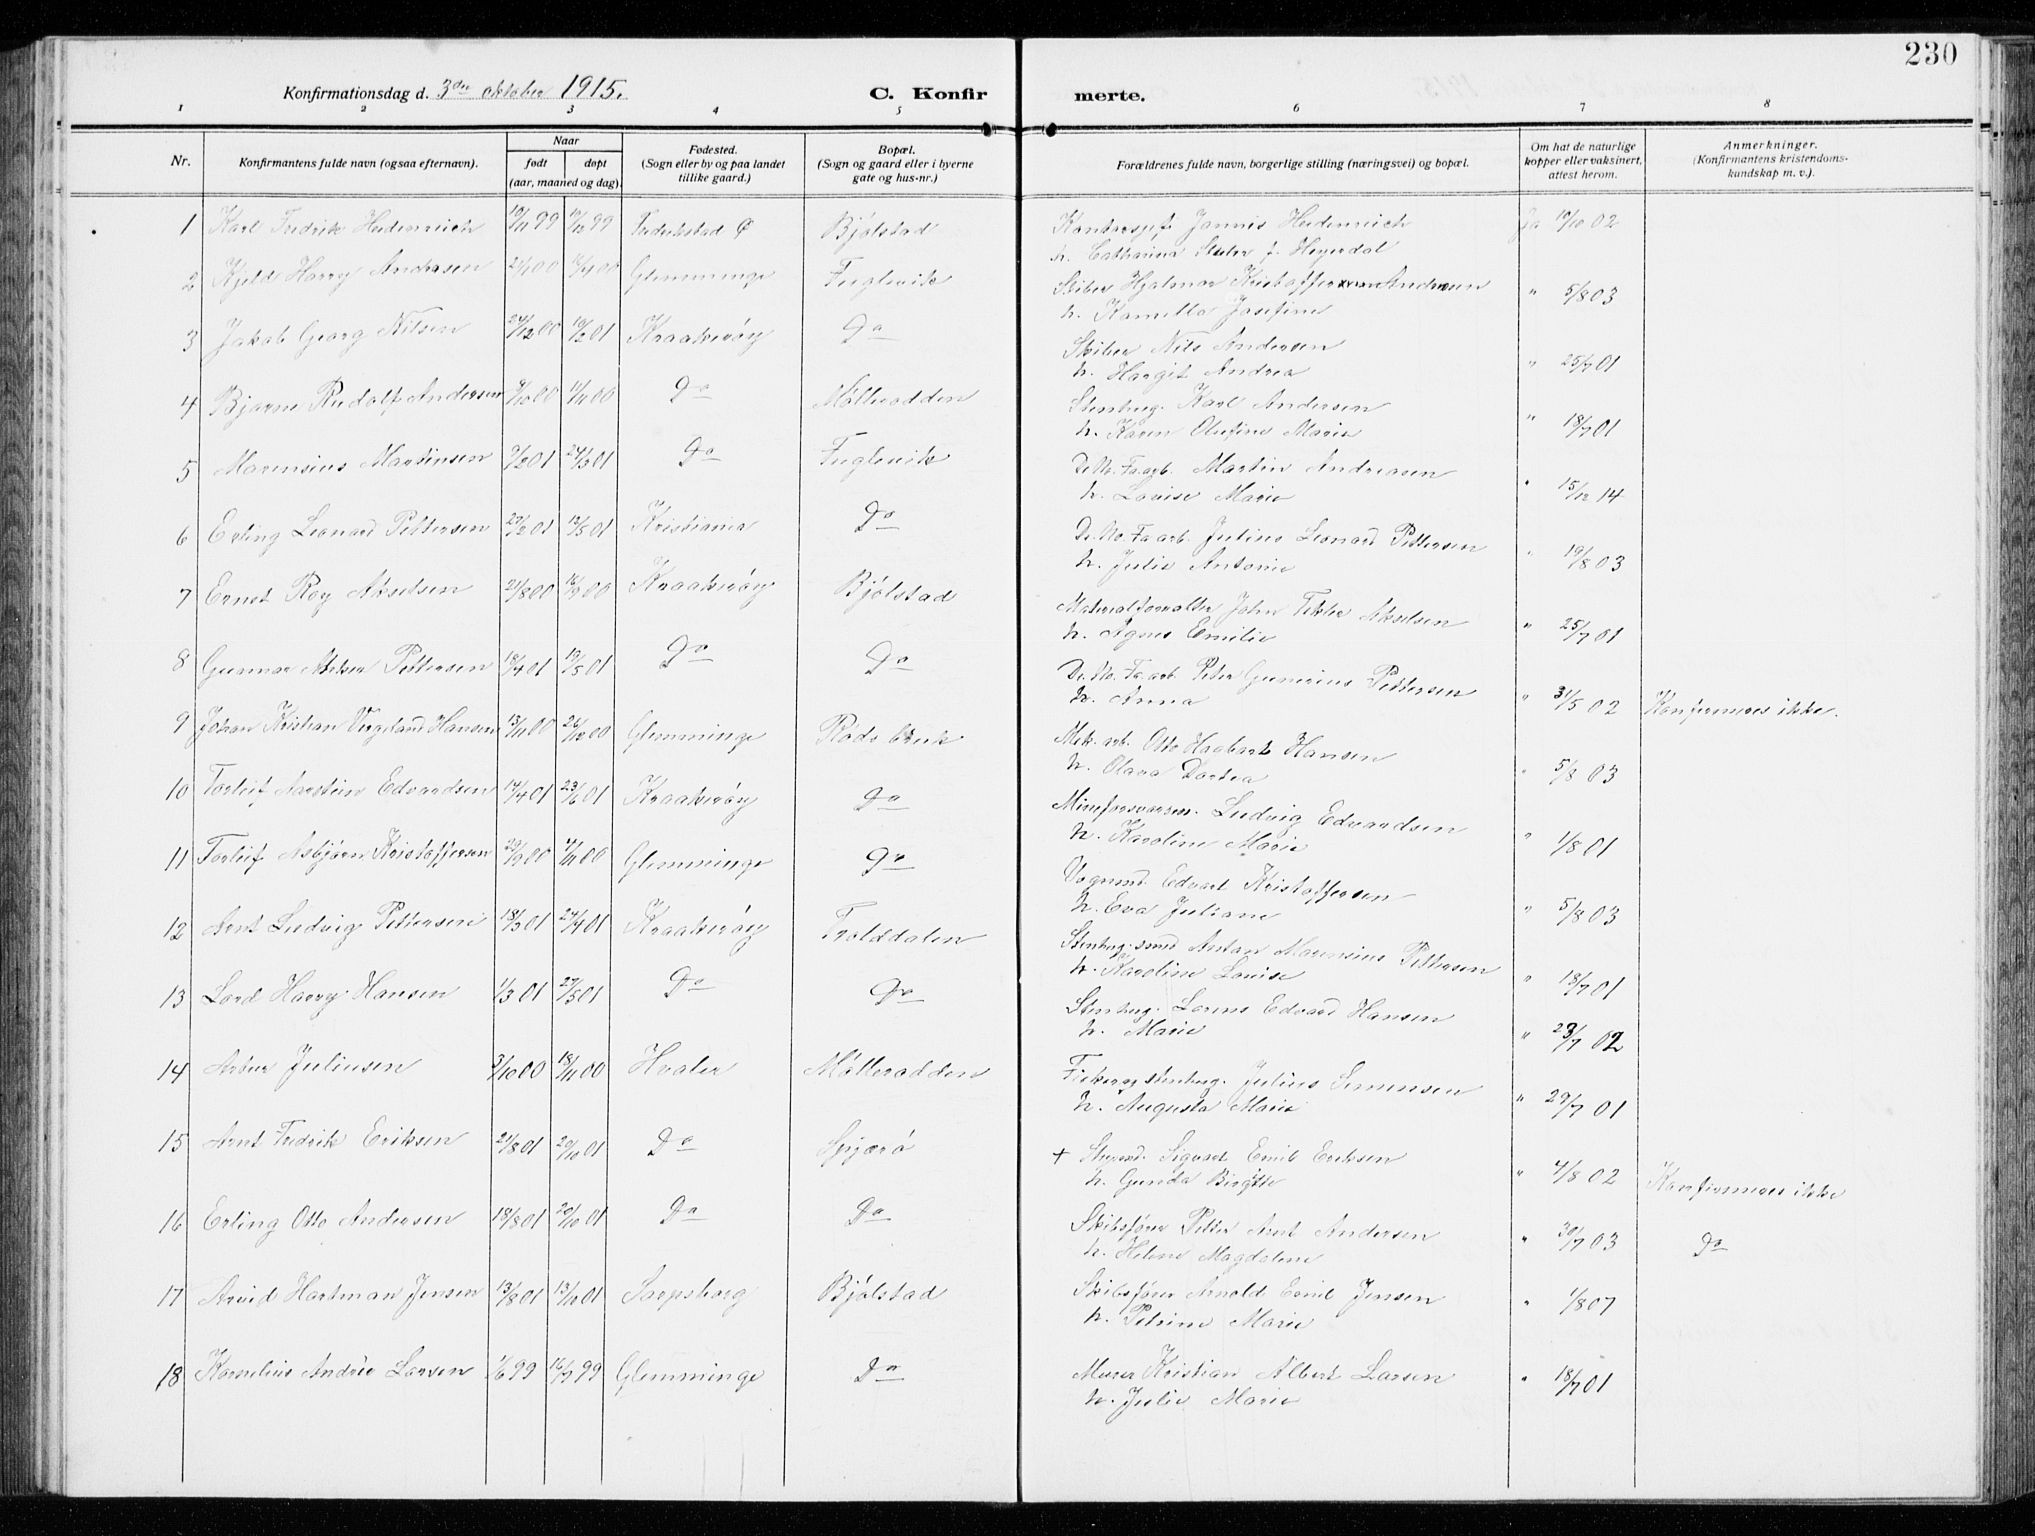 230
Konfirmationsdag d. 3die oktober 1915. C. Konfirmerte.
1 2 3 4 5 6 7 8
Nr. Konfirmantens fulde navn (ogsaa efternavn). Naar født døpt (aar, maaned og dag). Fødested. (Sogn eller by og paa landet tillike gaard.) Bopæl. (Sogn og gaard eller i byerne gate og hus-nr.) Forældrenes fulde navn, borgerlige stilling (næringsvei) og bopæl. Om hat de naturlige kopper eller vaksinert, attest herom. Anmerkninger. (Konfirmantens kristendomskundskap m. v.).
1 Karl Fredrik Heidenreich 10/11 99 Fredrikstad Bjølstad Kontorsjef Jannis Heidenreich Ja 10/10 02
h. Catharina f. Heyerdal
2 Kjeld Harry Andresen 21/1 00 Glemminge Fuglevik Skiber Hjalmar Kristoffer Andresen " 5/8 03
h. Kamilla Josefine
3 Jakob Georg Nilsen 24/12 00 10/2 01 Kraakerøy Do Skiber Nils Andersen " 25/7 01
h. Hargit Andrea
4 Bjarne Rudolf Andersen 9/10 00 11/11 00 Do Mølleodden Stenhug. Karl Andersen " 18/7 01
h. Karen Olufine Marie
5 Marensius Martinsen 7/2 01 24/3 01 Do Fuglevik De No. Fa. arb. Martin Andreasen " 15/12 14
h. Louise Marie
6 Erling Leonard Pettersen 27/2 01 12/5 01 Kristiania Do De No. Fa arb. Julius Leonard Pettersen " 19/8 03
h. Julie Antonie
7 Ernst Roy Akselsen 21/8 00 16/9 00 Kraakerøy Bjølstad Materialforvalter John Akselsen " 25/7 01
h. Agnes Emilie
8 Gunnar Pettersen 10/4 01 19/5 01 Do Do De No. Fa. arb. Peter Gunerius Pettersen " 31/5 02 Konfirmeres ikke.
h. Anna
9 Johan Kristian Vergeland Hansen 13/11 00 26/12 00 Glemminge Røds bruk Mek. arb. Otto Hagbart Hansen " 5/8 03
h. Olava Dortea
10 Torleif Aarstein Edvardsen 14/4 01 23/6 01 Kraakerøy Do Mineforsvarsm. Ludvig Edvardsen " 1/8 01
h. Karoline Marie
11 Torleif Asbjørn Kristoffersen 29/9 00 4/11 00 Glemminge Do Vognmd. Edvart Kristoffersen " 5/8 03
h. Eva Juliane
12 Arnt Ludvig Pettersen 18/3 01 24/4 01 Kraakerøy Trolddalen Stenhug. smed Anton Marensius Pettersen " 18/7 01
h. Karoline Louise
13 Lord Harry Hansen 1/3 01 27/5 01 Do Do Stenhug. Lorens Edvard Hansen " 23/7 02
h. Marie
14 Artur Juliussen 3/10 00 18/11 00 Hvaler Mølleodden Fisker og stenhug. Julius Simensen " 29/7 01
h. Augusta Marie
15 Arnt Fredrik Eriksen 21/8 01 20/10 01 Do Spjærø + Sigvart Emil Eriksen " 4/8 02 Konfirmeres ikke
h. Gunda Birgitte
16 Erling Otto Andersen 18/8 01 20/10 01 Do Do Skibsfører Petter Arnt Andersen " 30/7 03 Do
h. Helene Magdalene
17 Arvid Hartman Jensen 13/8 01 13/10 01 Sarpsborg Bjølstad Skibsfører Arnold Emil Jensen " 1/8 07
h. Petrine Marie
18 Kornelius Andrée Larsen 1/6 99 16/7 99 Glemminge Do Murer Kristian Albert Larsen " 18/7 01
h. Julie Marie